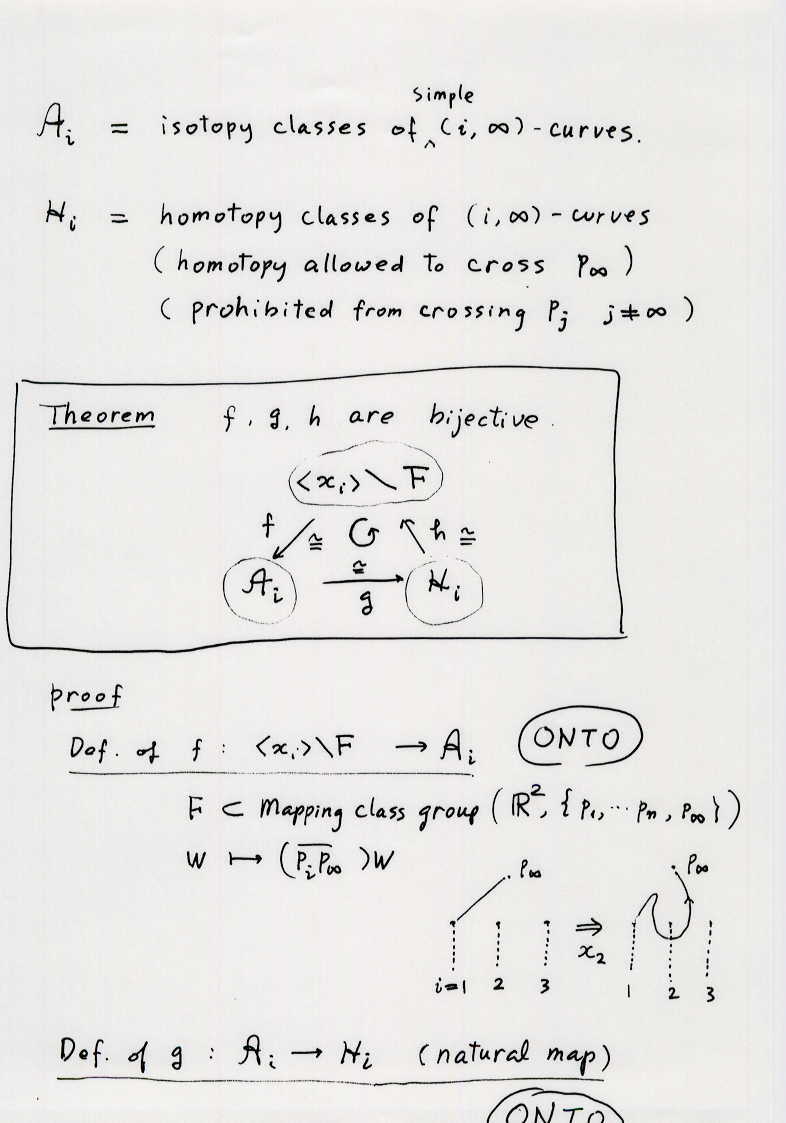 simple
𝒜ᵢ = isotopy classes of ‸ (i, ∞)-curves.
ℋᵢ = homotopy classes of (i, ∞)-curves
( homotopy allowed to cross p∞ )
( prohibited from crossing pⱼ j≠∞ )
Theorem f, g, h are bijective.
<xᵢ>\F
f ≅ ↺ h ≅
𝒜ᵢ ≅ → g ℋᵢ
proof
Def. of f : <xᵢ>\F → 𝒜ᵢ ONTO
F ⊂ Mapping class group (ℝ², {p₁, ⋯ pₙ, p∞})
w ↦ (p̅ᵢp̅∞)w
p∞ p∞
⇒
x₂
i=1 2 3 1 2 3
Def. of g : 𝒜ᵢ → ℋᵢ (natural map)
ONTO